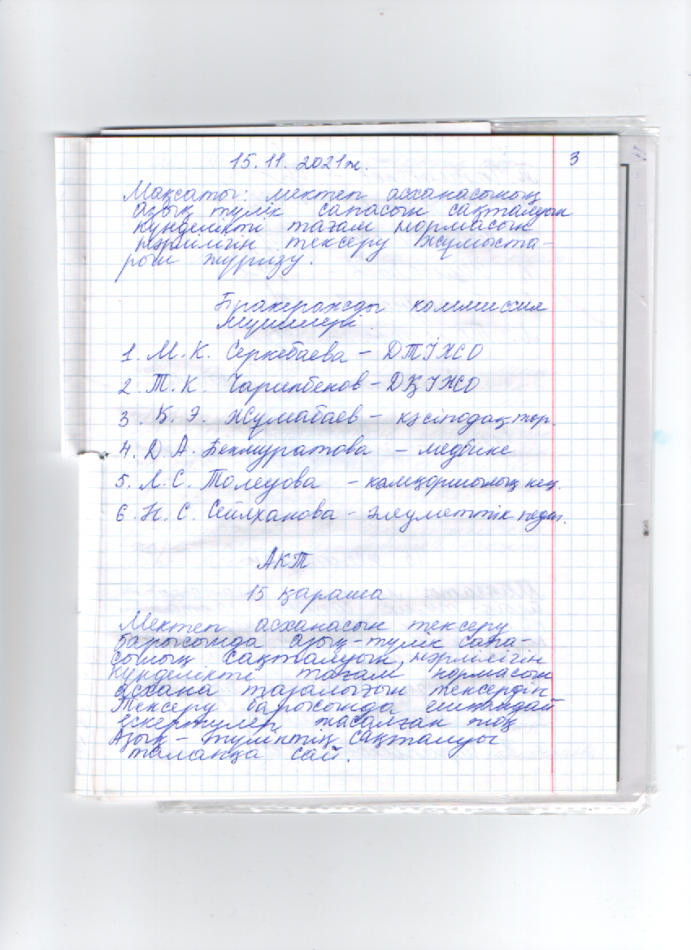 15.11.2021ж.
3
Мақсаты: мектеп асханасының
азық түлік сапасын сақталуын
күнделікті тағам нормасын
нәрлілігін тексеру жұмыста-
рын жүргізу.
Бракераждық коммиссия
мүшелері.
1. М.К. Серкебаева – ДТІЖО
2. Т.К. Чарипбеков – ДҚІЖО
3. Қ.Э. Жұмабаев – кәсіподақ төр.
4. Д.А. Бекмуратова – медбике
5. Л.С. Толеуова – қамқоршылық кең.
6. Н.С. Сейлханова – әлеуметтік педаг.
Акт
15 қараша
Мектеп асханасын тексеру
барысында азық-түлік сапа-
сының сақталуын, нәрлілігін
күнделікті тағам нормасын
асхана тазалығын тексердік
Тексеру барысында ешқандай
ескертулер жасалған жоқ
Азық – түліктің сақталуы
талапқа сай.